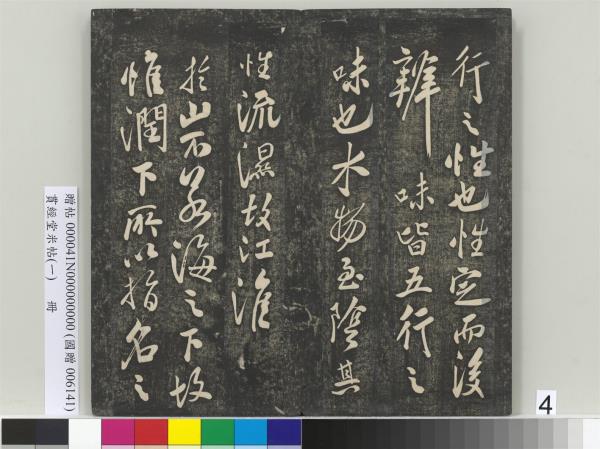 行之性也性定而後
辨味皆五行之
味也水物至陰其
性流濕故江淮
於山不若海之下故
惟潤下所以指名之
贈帖 000041N000000000 (國贈 006141)
貫經堂米帖(一) 冊
4